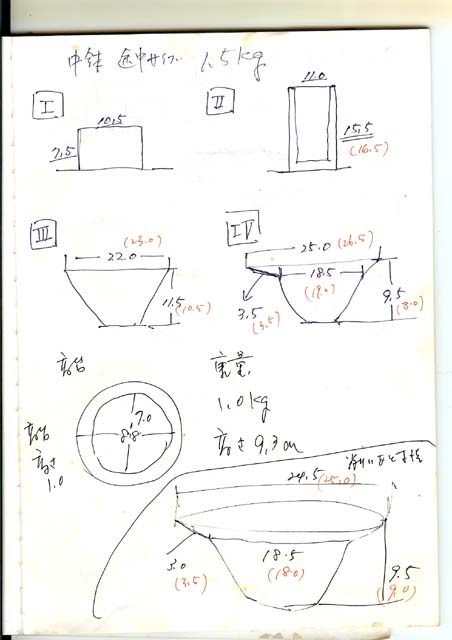 中鉢 途中 1.5kg
I
10.5
7.5
II
11.0
15.5
(16.5)
III
(23.0)
22.0
11.5
(10.5)
IV
25.0 (26.5)
18.5
(19.0)
3.5
(3.5)
9.5
(8.0)
高台
7.0
8.8
高台
高さ
1.0
重量
1.0kg
高さ 9.3cm
24.5
(25.0)
3.0
(3.5)
18.5
(18.0)
9.5
(9.0)